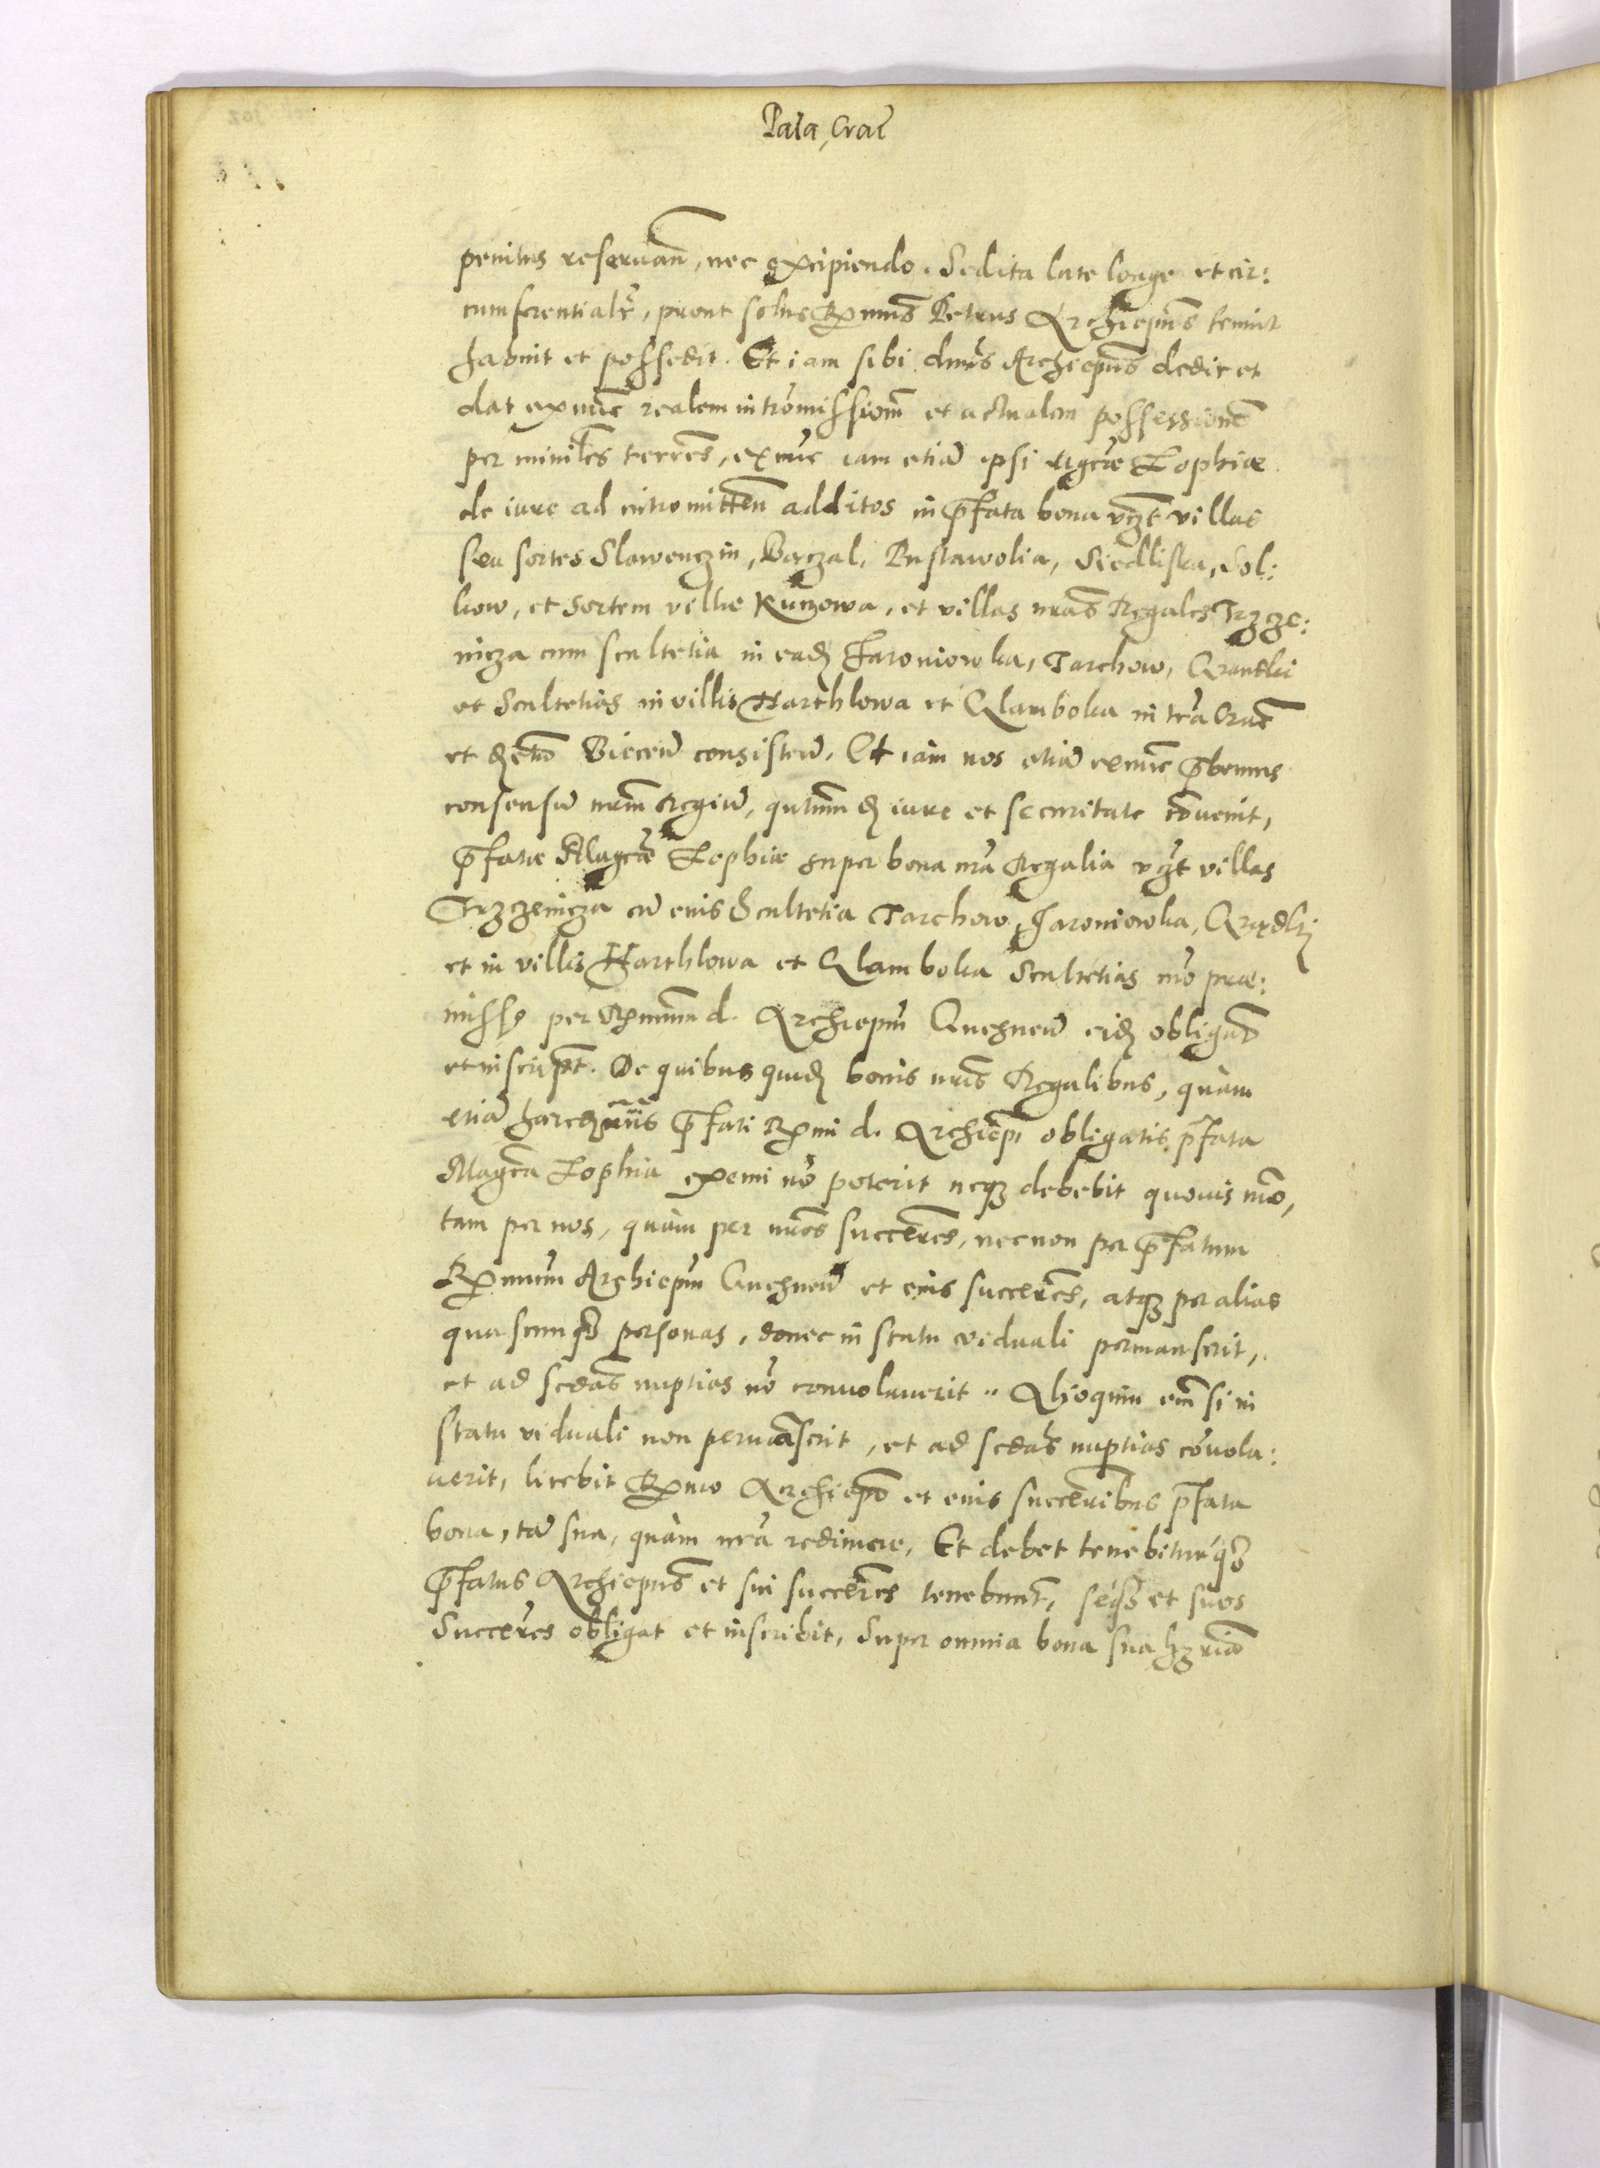 Pala, Crac̃
penitus reseruan̄, nec excipiendo. Sed ita late longe et cir:
cumferentialr̃, prout solus Rx̃mus Petrus Archiepūs tenuit
habuit et possedit. Et iam sibi dn̄us Archiepūs dedit et
dat exnūc realem intromissionem et actualem possessionē
per minil̃es terres̃, exnūc iam etiā ipsi Mgcæ Zophiæ
de iure ad intromitten̄ additos in p̃fata bona vcz̃t villas
seu sortes Slawenczin, Bączal, Pustawolia, Siedliska, Sol:
kow, et sortem villæ Kunzowa, et villas nr̃as Regales Trzcze:
nicza cum scultetia in eadē Jaroniowka, Tarchow, Grantki
et Scultetias in villis Harthlowa et Glamboka in tr̃a Crac̃
et dc̃tu Biecen̄ consisten̄. Et iam nos etiā exnūc p̃bemus
consensū nr̃m Regiū, qūtum de iure et securitate cōuenit,
p̃fatæ Magcæ Zophiæ super bona nr̃a Regalia vcz̃t villas
Trzczenicza cū eius Scultetia Tarchow, Jaroniowka, Grądki
et in villis Harthlowa et Glamboka Scultetias mō præ:
misso per Rx̃mum d. Archiepūm Gnesnen̄ eidē obligat̄
et inscript̄. De quibus quidē bonis nr̃is Regalibus, quàm
etiā p̃fati Rx̃mi d. Archiepi obligatis p̃fata
Magcā Zophia exemi nō poterit neqz debebit quouis mō,
tam per nos, quàm per nr̃os succes̃res, necnon per p̃fatum
Rx̃mum Archiepūm Gnesnen̄ et eius succes̃res, atqz per alias
quascunqz personas, donec in statu viduali permanserit,
et ad sc̃das nuptias nō conuolauerit. Alioquin em̄ si in
statu viduali non permāserit, et ad sc̃das nuptias cōuola:
uerit, licebit Rx̃mo Archiepō et eius succes̃ribus p̃fata
bona, tā sua, quàm nr̃a redimere, Et debet tenebiturqz
p̃fatus Archiepūs et sui succes̃res tenebunt̄, seqz et suos
Succes̃res obligat et inscribit, super omnia bona sua